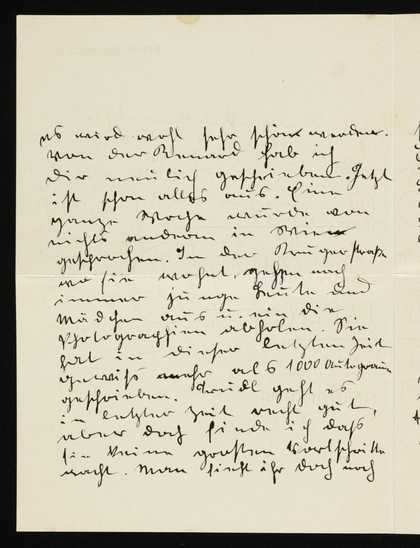 es wird wohl sehr schön werden.
Von der Renard hab ich
dir neulich geschrieben. Jetzt
ist schon alles aus. Eine
ganze Woche wurde von
nichts anderm in Wien
geschprochen. In der Krugerstraße
wo sie wohnt, gehen noch
immer junge Leute und
Mädchen aus u. ein die
Photographien abholen. Sie
hat in dieser letzten Zeit
gewiß mehr als 1000 Autogramme
geschrieben. Trudl geht es
in letzter Zeit recht gut,
aber doch finde ich daß
sie keine großen Fortschritte
macht. Man sieht ihr doch noch